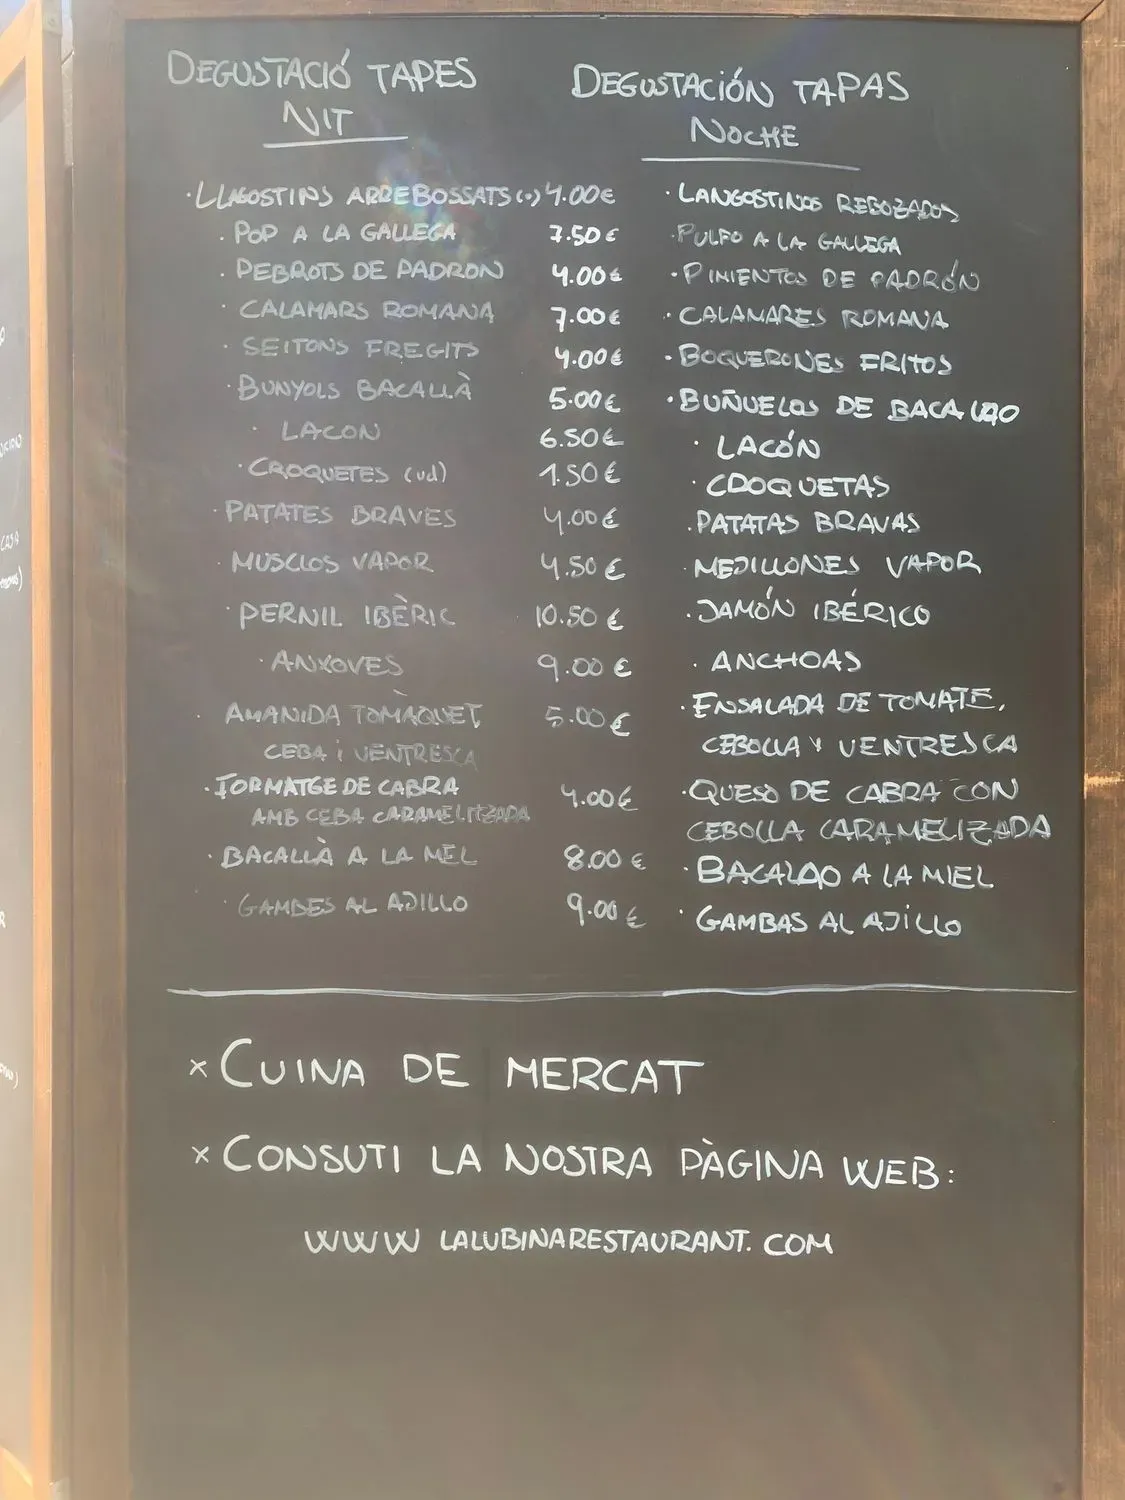 DEGUSTACIÓ TAPES
NIT
DEGUSTACIÓN TAPAS
NOCHE
· LLAGOSTINS ARREBOSSATS 4.00€ · LANGOSTINOS REBOZADOS
· POP A LA GALLEGA 7.50€ · PULPO A LA GALLEGA
· PEBROTS DE PADRON 4.00€ · PIMIENTOS DE PADRÓN
· CALAMARS ROMANA 7.00€ · CALAMARES ROMANA
· SEITONS FREGITS 4.00€ · BOQUERONES FRITOS
· BUNYOLS BACALLÀ 5.00€ · BUÑUELOS DE BACALAO
· LACON 6.50€ · LACÓN
· CROQUETES (ud) 1.50€ · CROQUETAS
· PATATES BRAVES 4.00€ · PATATAS BRAVAS
· MUSCLOS VAPOR 4.50€ · MEJILLONES VAPOR
· PERNIL IBÈRIC 10.50€ · JAMÓN IBÉRICO
· ANXOVES 9.00€ · ANCHOAS
· AMANIDA TOMÀQUET 5.00€ · ENSALADA DE TOMATE,
CEBA i VENTRESCA CEBOLLA Y VENTRESCA
· FORMATGE DE CABRA 4.00€ · QUESO DE CABRA CON
AMB CEBA CARAMELITZADA CEBOLLA CARAMELIZADA
· BACALLÀ A LA MEL 8.00€ · BACALAO A LA MIEL
· GAMBES AL AJILLO 9.00€ · GAMBAS AL AJILLO
× CUINA DE MERCAT
× CONSUTI LA NOSTRA PÀGINA WEB:
WWW LALUBINARESTAURANT.COM